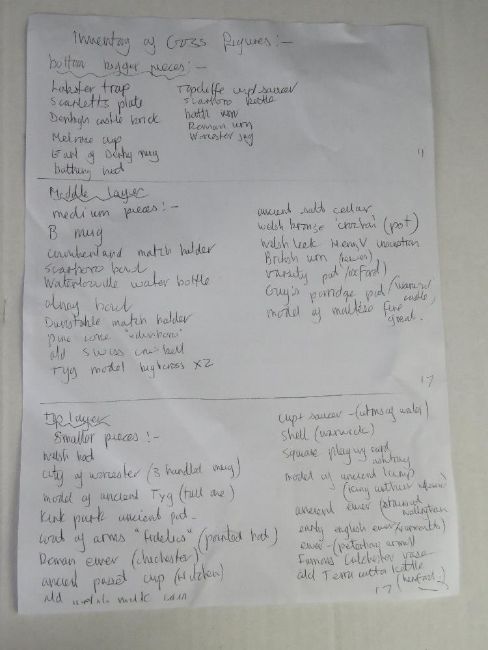 Inventory of Goss Figures:-
bottom bigger pieces:-
Lobster trap
Scarletts plate
Denbigh castle brick
Melrose cup
Earl of Derby mug
bathing hut
Topcliffe cup/saucer
Scarboro kettle
bath urn
Roman urn
Worcester jug
11
Middle layer
medium pieces:-
B mug
cumberland match holder
Scarboro bowl
Waterlooville water bottle
olney bowl
Dunstable match holder
pine cone
old swiss cow bell
Tyg model highcross x2
ancient salt cellar
welsh bronze "crochan" (pot)
welsh leek Henry V
British urn
varsity pot (oxford)
Guy's porridge pot/warwick castle,
model of maltese fire
great.
17
Top layer
Smaller pieces:-
welsh hat
city of worcester (3 handled mug)
model of ancient Tyg (tall one)
ancient pot
coat of arms "Fidelius" (pointed hat)
Roman ewer (chichester)
ancient posset cup
old welsh milk can
cup + saucer - (
shell (warwick)
square playing card
model of ancient lamp
ancient ewer
early english ewer
ewer - (
Famous Colchester vase
old Terra cotta kettle
17 (